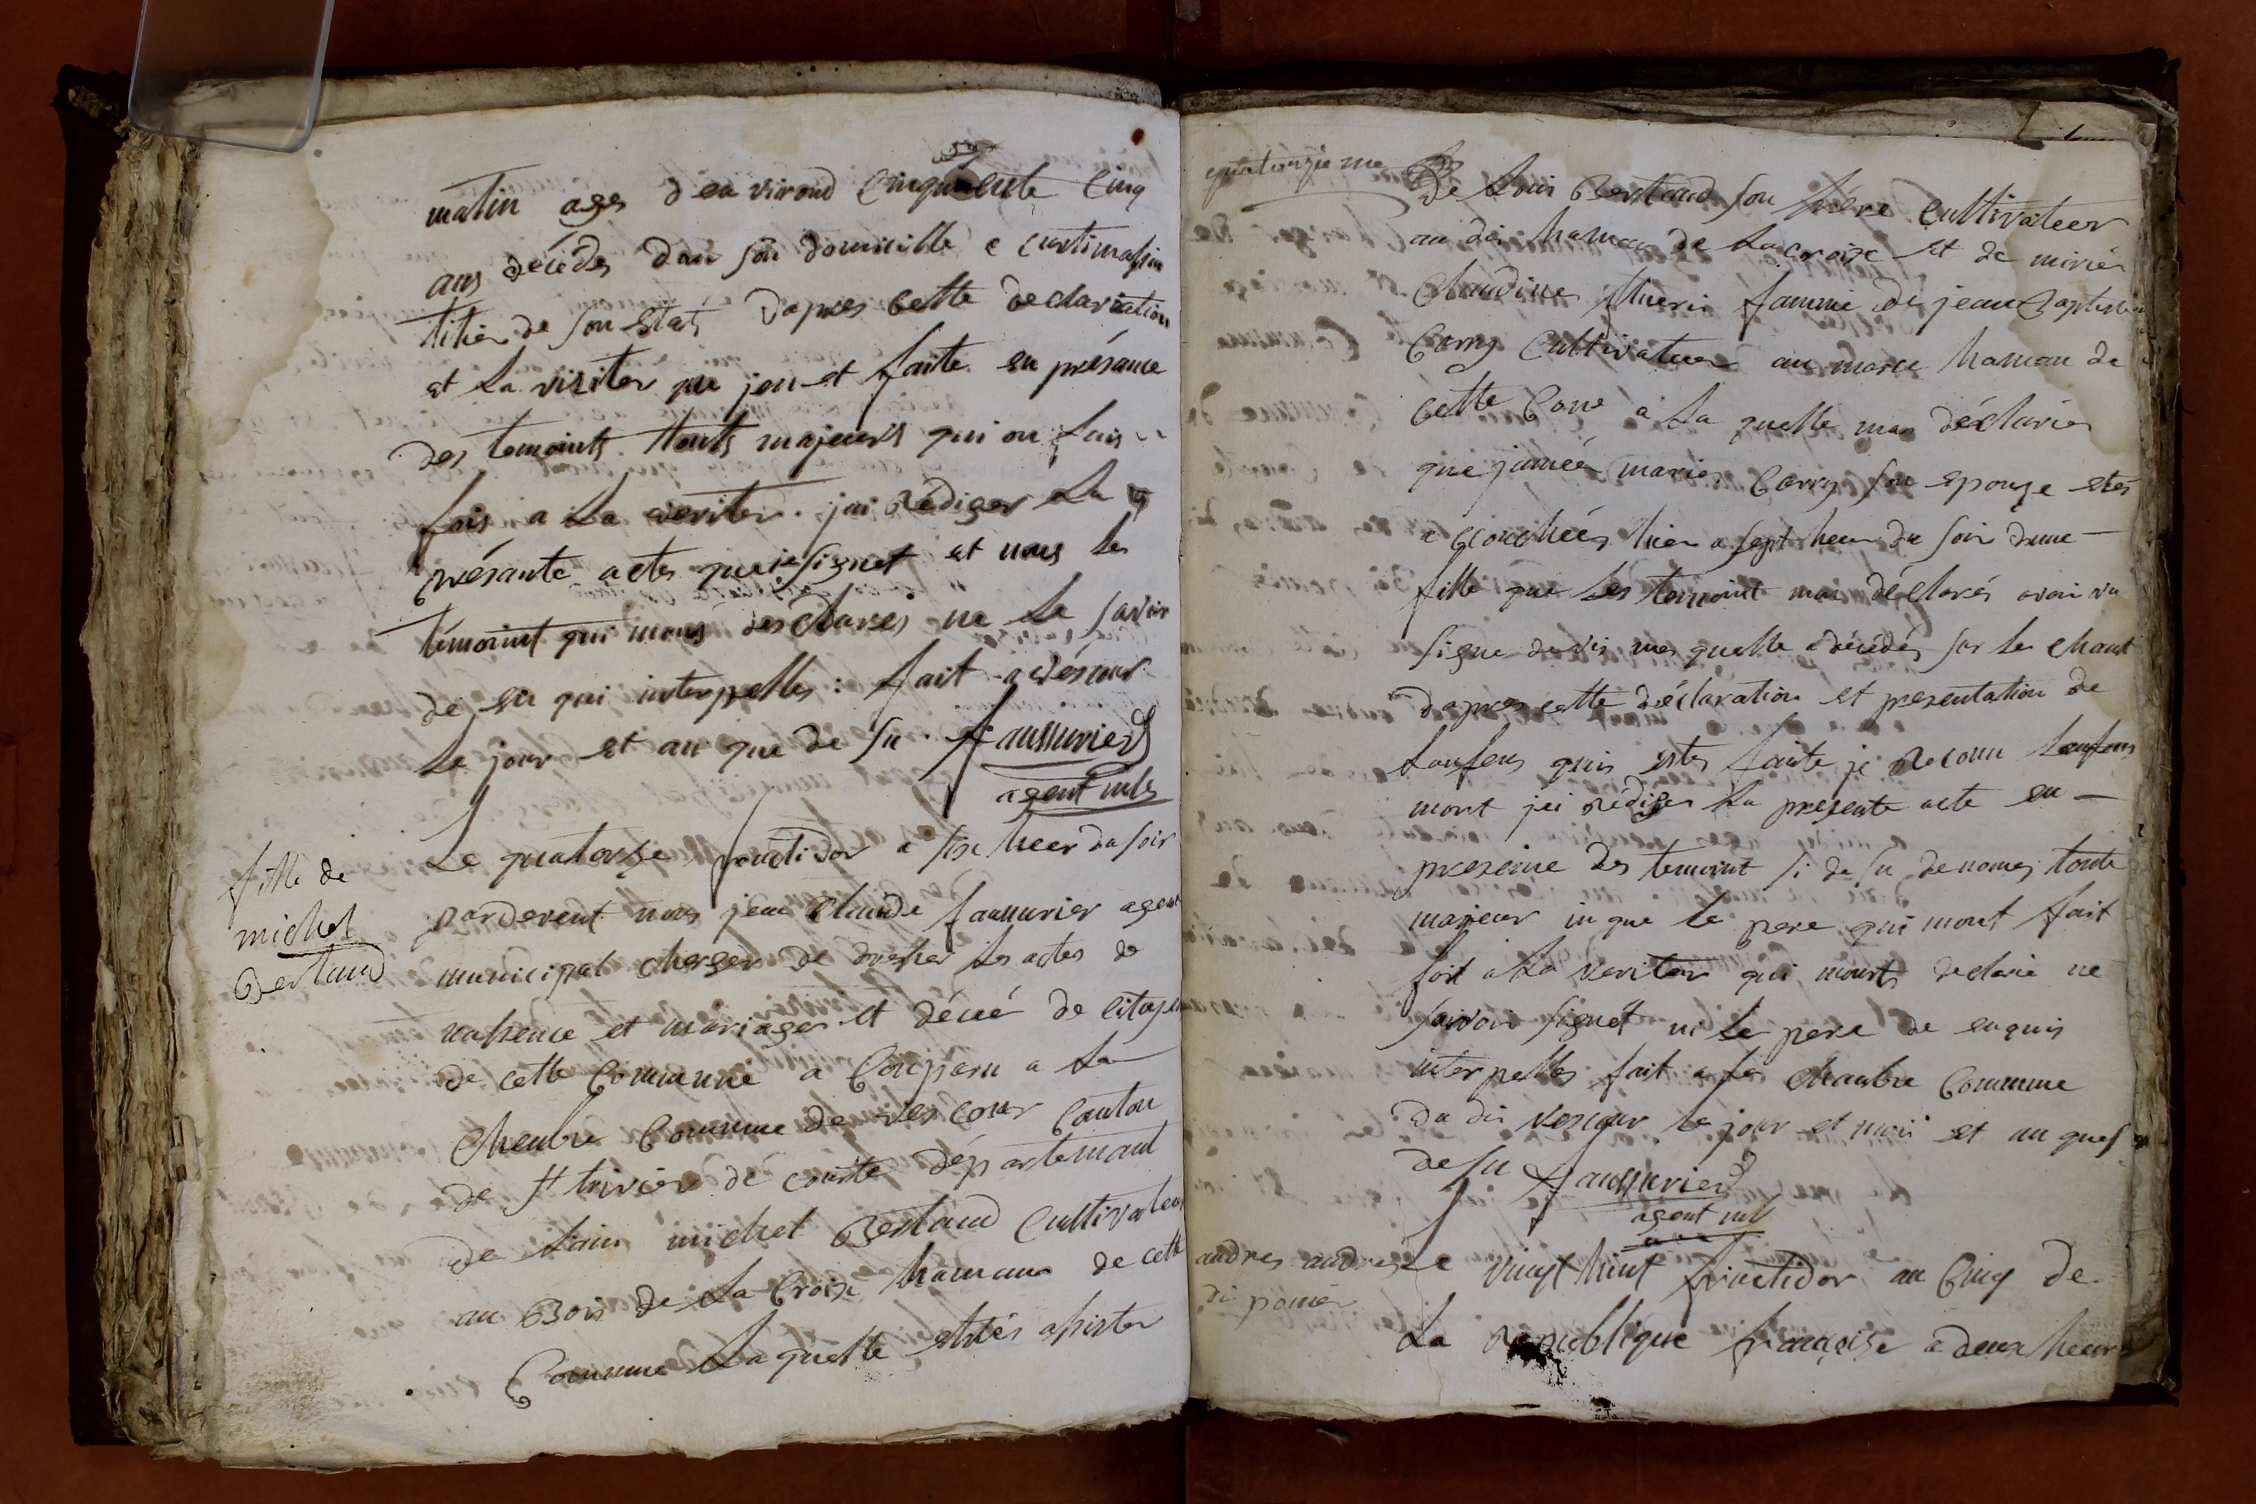 matin ages d'en viroud cinquante cinq
ans décédes dan son domicille a curtimassin
titier de son états dapres cette declaration
et la visiter que jen et faite en présance
des temoints touts majeurs qui on fais
fois a la veriter. jai rédiger la
présante actes que je signet et nous les
témoint qui mons desclares ne le savoir
de en qui interpelles : fait a véscour
le jour et an que de su. faussurier
agent mls
fille de
michel
Bertaud
Le quatorze fructidor a sise heer du soir
pardevent nous jean Claude faussurier agent
municipal cherger de dresser les actes de
nassence et mariages et décé de citoyen
de cette Commune a Conparu a la
chenbre Commune de vescour Canton
de st trivier de courte départemant
de lain michel Bertaud Cultivateur
au Bois de la Croise hamaux de cette
Commune laquelle estés assister
quatorzieme
de louis Bertaud son frére Cultivateer
au dis hamau de la croise et de
Claudine famme de jean Baptiste
Carry Cultivateur au mame hamau de
cette Cone a la quelle mas déclarér
que marie Carry son epouze etés
acouchées hier a sept heur du soir dune
fille que les temoint mon déclarés avoir vu
signe de vis mes quelle a décédés sur le chant
dapres cette déclaration et presentation de
lanfens quis estes faite je reconu lenfens
mort jei rédiger la presente acte en
presence des temoint si de su denomes toute
majeur in que le pere qui mont fait
foit a la veriter qui mont declaré ne
savoir signét ni le pere de enquis
interpelles fait a la chanbre Commune
du dis vescour le jour et mois et an ques
de su faussurier
agent mls
andres andres
di
Le vingt huit fructidor an Cinq de
la republique françoise a deux heur